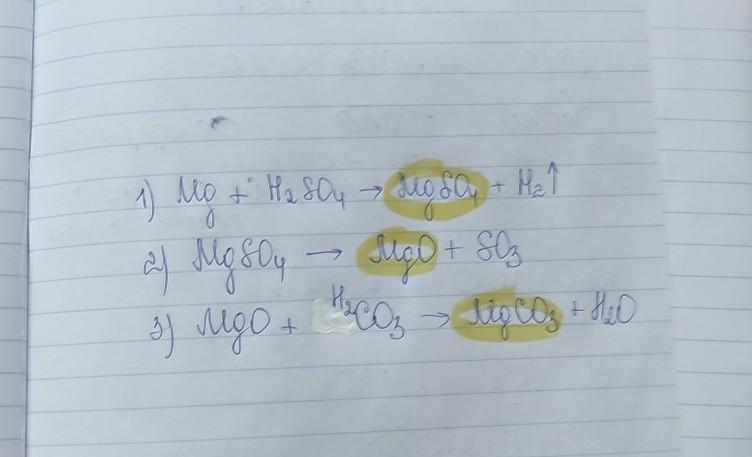 1) Mg + H₂SO₄ → MgSO₄ + H₂↑
2) MgSO₄ → MgO + SO₃
3) MgO + H₂CO₃ → MgCO₃ + H₂O